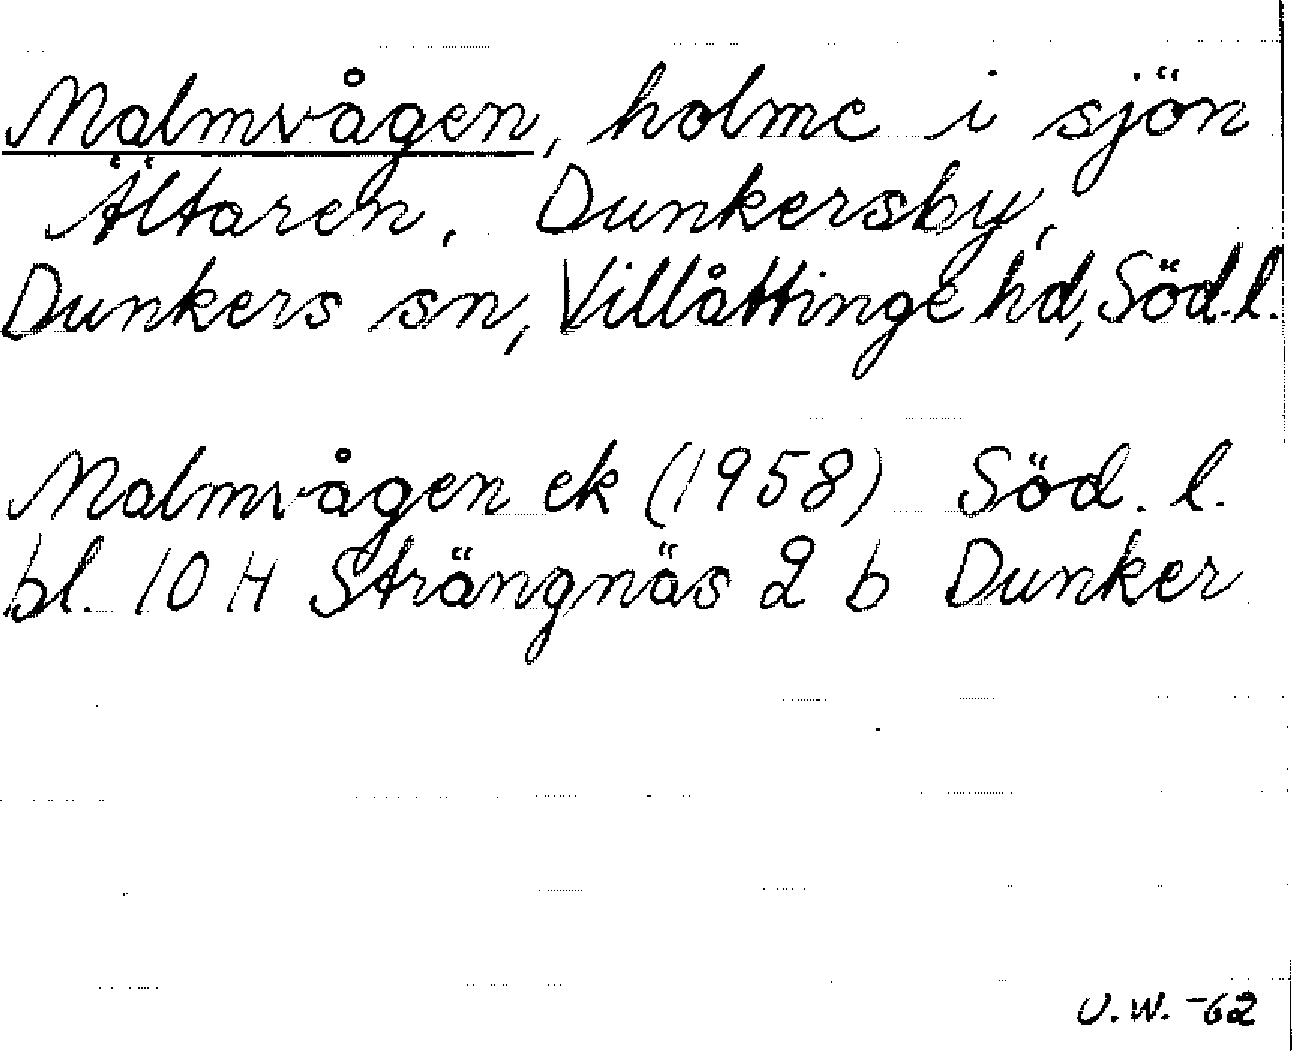 Malmvågen, holme i sjön
Ältaren, Dunkersby,
Dunkers sn, Villåttinge hd, Söd.l.
Malmvågen ek (1958) Söd. l.
bl. 10 H Strängnäs 2 b Dunker
U.W. -62